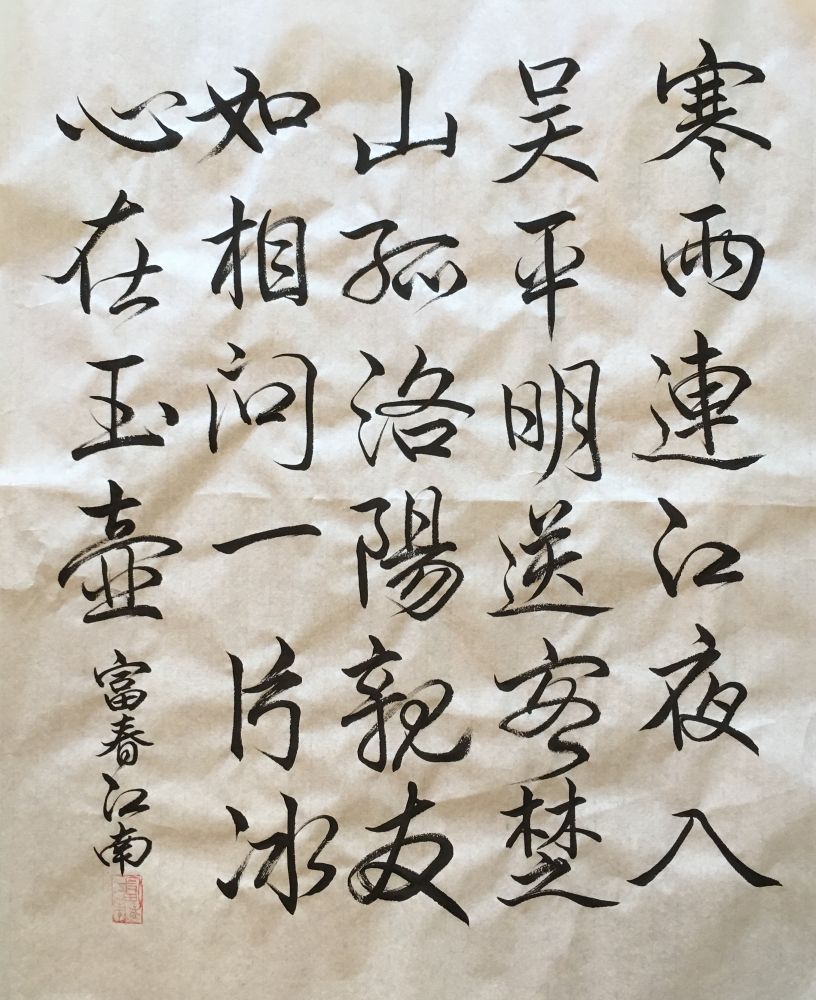 寒雨連江夜入
吴平明送客楚
山孤洛陽親友
如相問一片冰
心在玉壺
富春江南